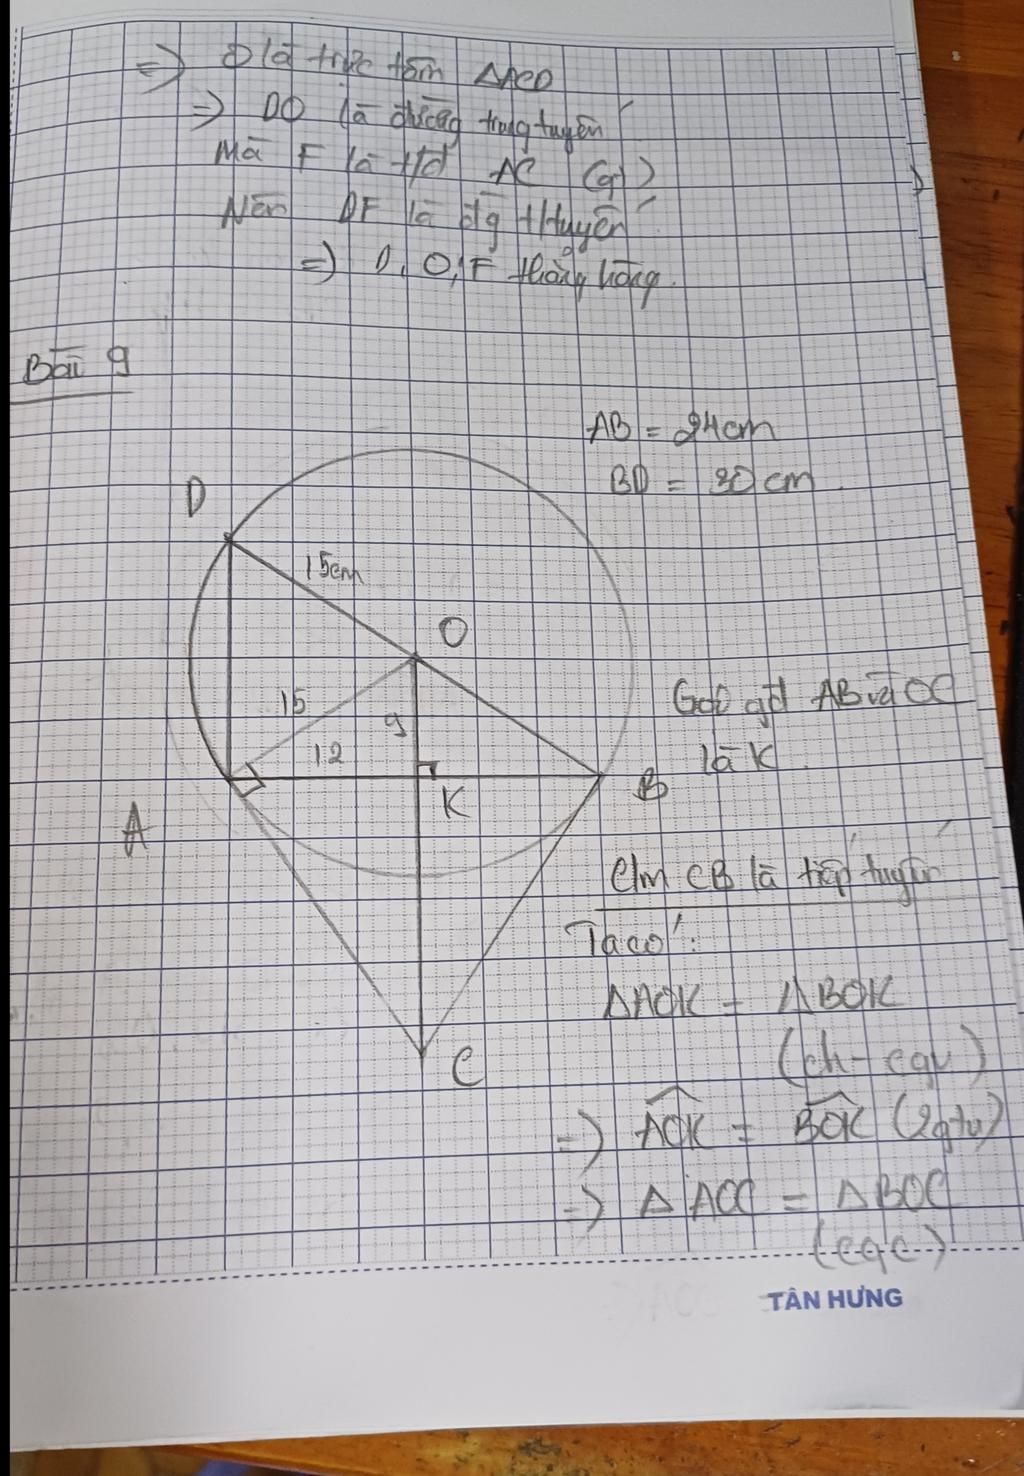 => O là trực tâm ΔACD
=> DO là đường trung tuyến
Mà F là t/đ AC (gt)
Nên DF là đg t/tuyến
=> D, O, F thẳng hàng.
Bài 9
AB = 24cm
BD = 30cm
D
15cm
O
15
9
12
Gọi gđ AB và OC
là K
A
K
B
Cm CB là tiếp tuyến
Ta có:
ΔAOK = ΔBOK
C
(ch-cgv)
=> AOK = BOK (2gtư)
=> ΔAOC = ΔBOC
(cgc)
TÂN HƯNG